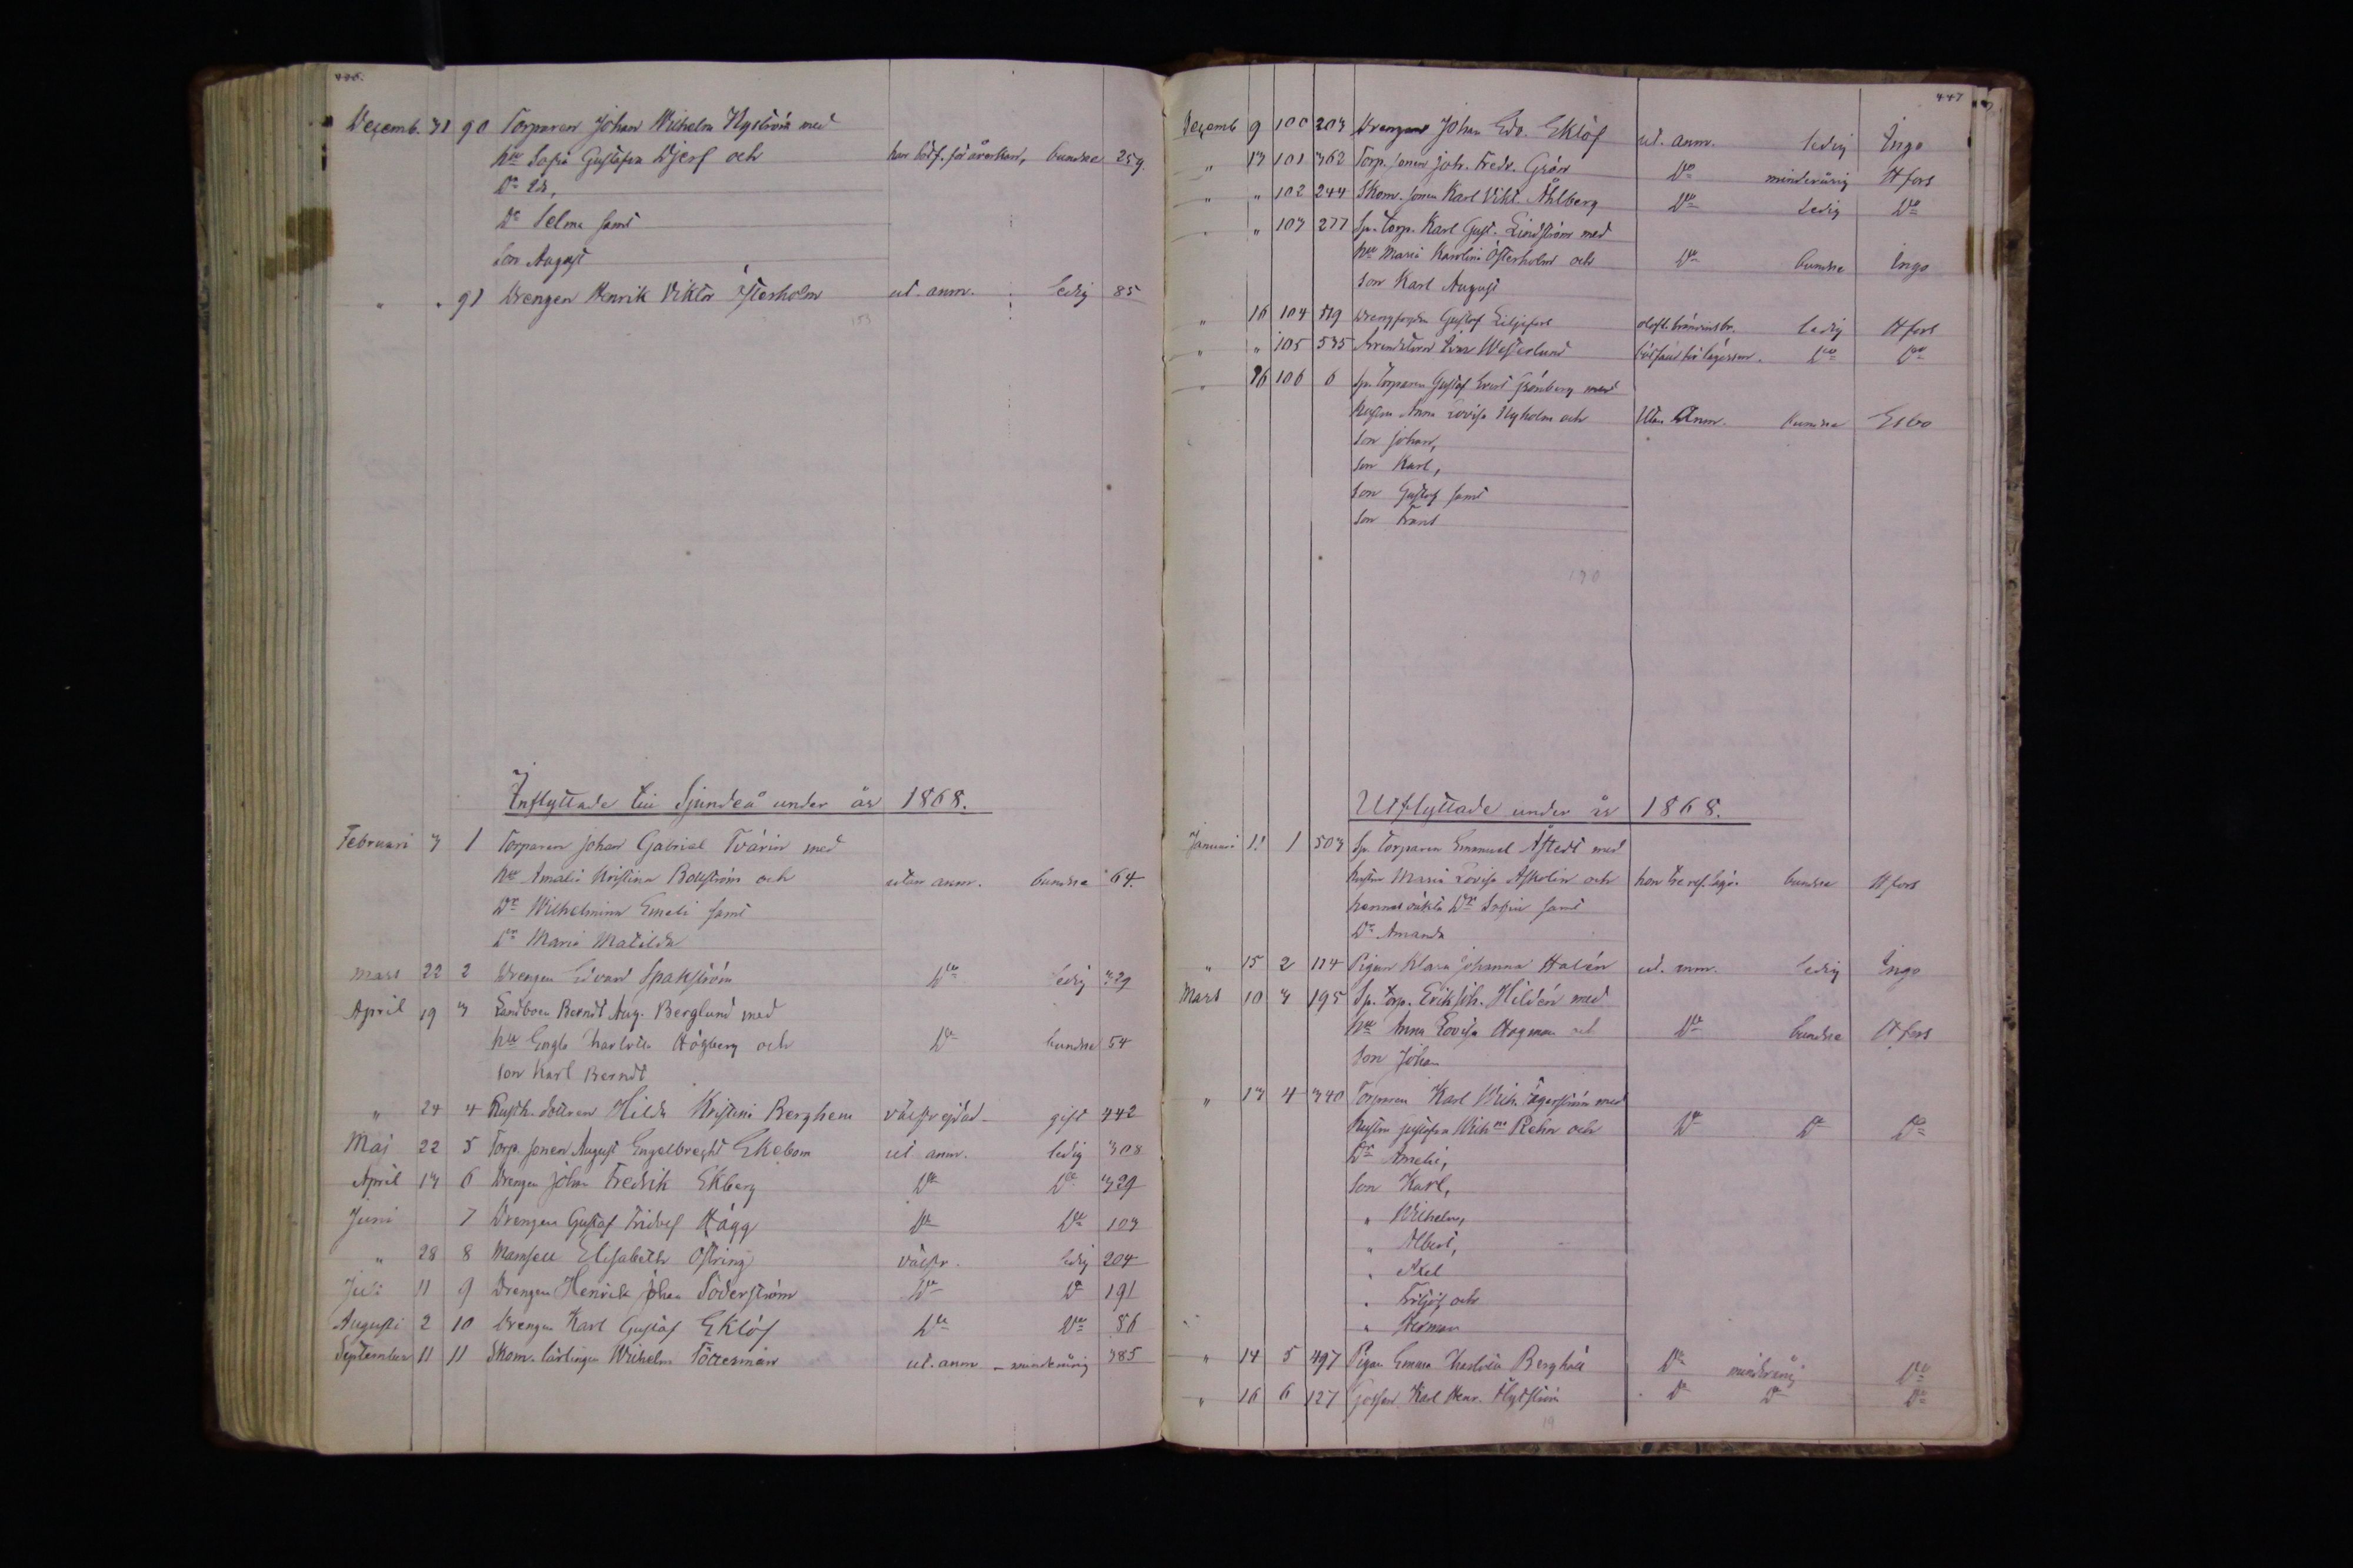 Decemb. 31 90 Torparen Johan Wilhelm Nyström med
hu Sofia Gustafsn Djerf och han bötf. för åverkan, bundne 259
Dr Ida,
Dr Selma samt
son August
" " 91 Drengen Henrik Viktor Österholm ut. anm. ledig 85
153
Inflyttade till Sjundeå under år 1868.
Februari 3 1 Torparen Johan Gabriel Tvärin med
hu Amalia Kristina Bollström och utan anm. bundne 64.
Dr Wilhelmina Emeli samt
Dr Maria Matilda
Mars 22 2 Drengen Edvard Spakström Do ledig 329
April 19 3 Landboen Berndt Aug. Berglund med
hu Engla Charlotta Högberg och Do bundne 54
son Karl Berndt
" 24 4 Rusth. dottren Hilda Kristina Berghem välfrejdad gift 442
Maj 22 5 Torp. sonen August Engelbrecht Ekebom ut anm. ledig 308
April 13 6 Drengen Johan Fredrik Ekberg Do Do 329
Juni 7 Drengen Gustaf Fridolf Hägg Do Do 103
" 28 8 Mamsell Elisabeth Östring välfr. ledig 204
Juli 11 9 Drengen Henrik Johan Söderström Do Do 191
Augusti 2 10 Drengen Karl Gustaf Eklöf Do Do 86
September 11 11 Skom. lärlingen Wilhelm ut. anm - minderårig 385
447
Decemb 9 100 203 Drengen Johan Edv. Eklöf ut. anm. ledig Ingo
" 13 101 362 Torp. sonen Joh. Fredr. Grön Do minderårig Hfors
" " 102 244 Skom. sonen Karl Vikt. Åhlberg Do ledig Do
" " 103 277 Sp. torp. Karl Gust. Lindström med
hu Maria Karolina Österholm och Do bundne Ingo
son Karl August
" 16 104 519 Gustaf Liljefors ledig Hfors
" " 105 535 Ivar Westerlund Do Do
" 26 106 6 Sp. Torparen Gustaf Evert Grönberg med
hustru Anna Lovisa Nyholm och Utan Anm. bundne Esbo
son Johan,
son Karl,
son Gustaf samt
son Frans
190
Utflyttade under år 1868.
Januari 11 1 503 Sp. Torparen Emanuel Åstedt med
hustru Maria Lovisa Askolin och bundne Hfors
hennes oäkta Dr Sofia samt
Dr Amanda
" 15 2 114 Pigan Klara Johanna Halén ut. anm. ledig Ingo
Mars 10 3 195 Sp. torp. Erik Joh. Hildén med
hu Anna Lovisa Hagman och Do bundne Hfors
son Johan
" 13 4 340 Torparen Karl Wilh. Ågerström med
hustru Justina Wilhna Rehn och Do Do Do
Dr Amelie,
son Karl,
" Wilhelm,
" Albert,
" Axel
" Fritjof och
" Herman
" 14 5 497 Pigan Emma Charlotta Berghäll Do minderårig Do
" 16 6 127 Gossen Karl Henr. Flydström Do Do Do
19